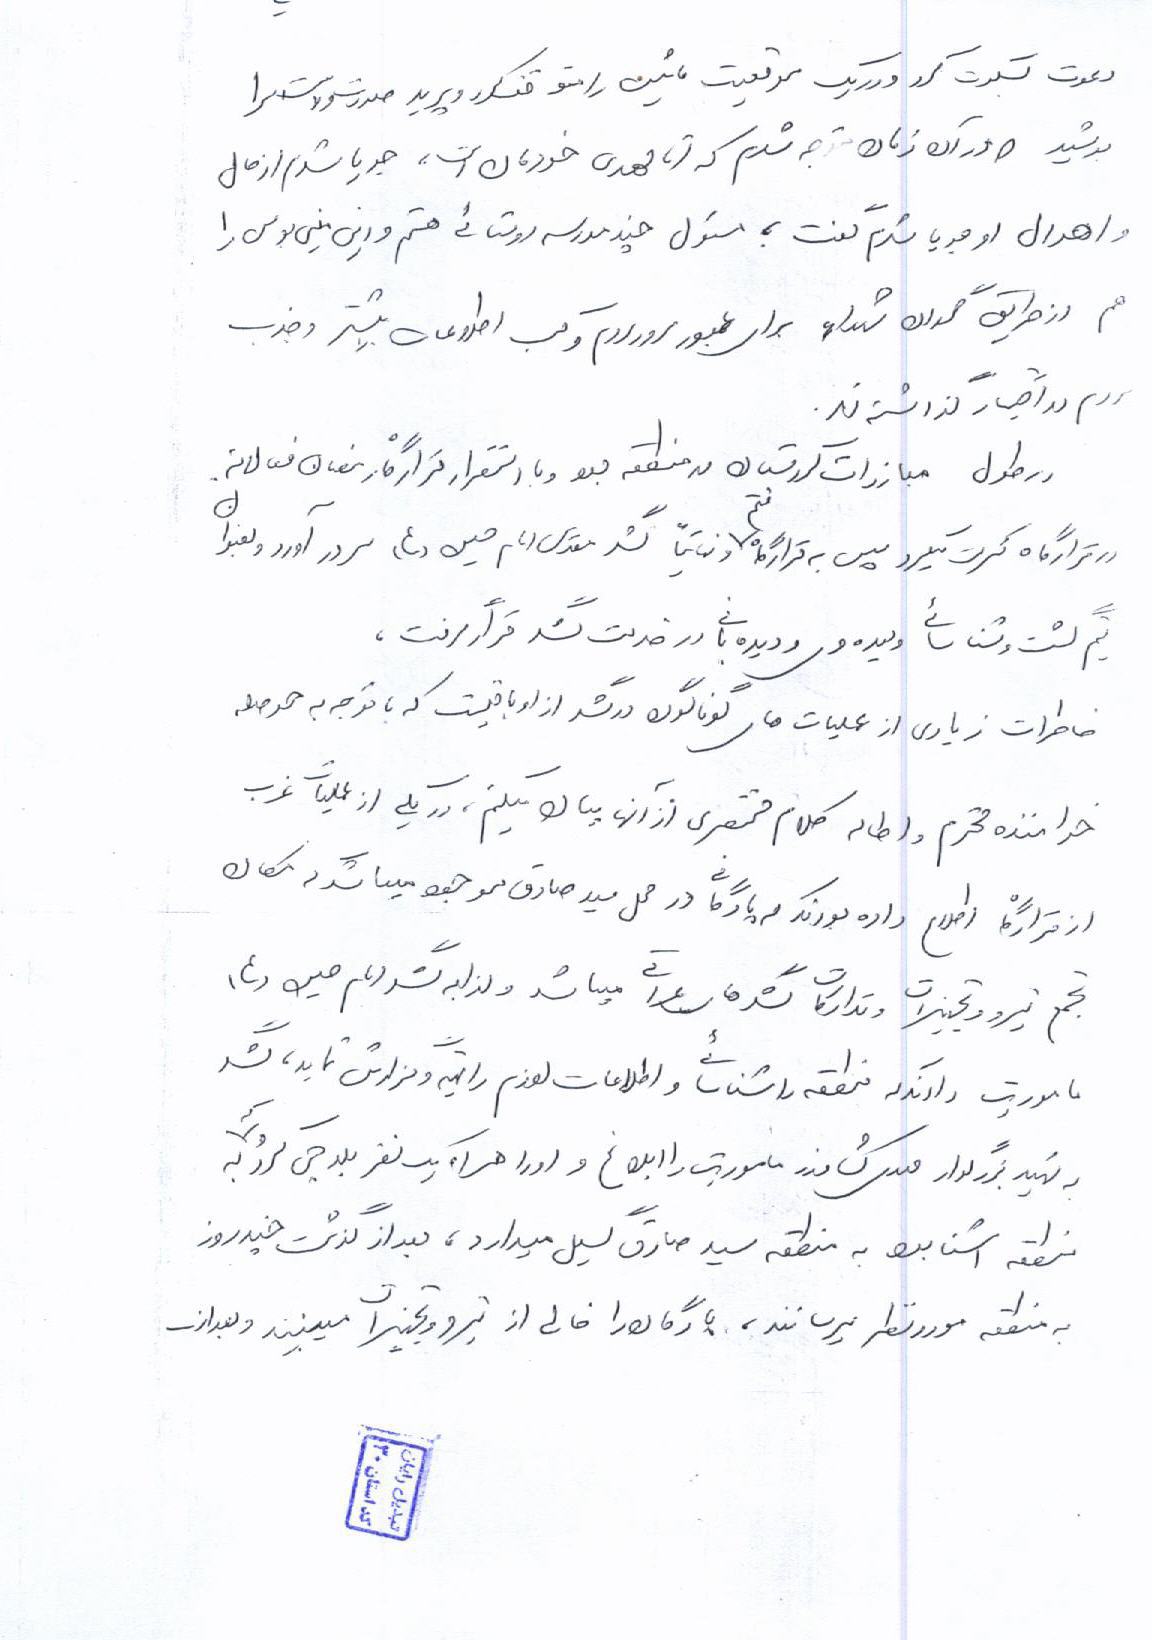 دعوت بسکوت کرد و در یک موقعیت ماشین را متوقف کرد و پرید صورت
بوسید در آن زمان متوجه شدم که آقا مهدی خودمان است، جویا شدم از حال
و احوال او جویا شدم گفت: مسئول چند مدرسه روستائی هستم و این مینی بوس را
هم از طریق گردان شهداء برای عبور و مرور مردم و کسب اطلاعات بیشتر و جذب
مردم در اختیار گذاشته اند.
در طول مبارزات کردستان در منطقه بود و با استقرار قرارگاه رمضان فعالانه
در قرارگاه شرکت میکرد سپس به قرارگاه فتح و نهایتاً لشگر مقدس امام حسین (ع) سر در آورد و بعنوان
تیم گشت و شناسائی و دیده بانی در خدمت لشگر قرار گرفت،
خاطرات زیادی از عملیات های گوناگون در لشگر از او باقیست که با توجه به حوصله
خواننده محترم و اطاله کلام مختصری از آنها بیان میکنم، در یکی از عملیات غرب
از قرارگاه اطلاع داده بودند که پادگانی در محل سید صادق موجود میباشد که مکان
تجمع نیرو و تجهیزات و تدارکات لشگرهای عراقی میباشد و لذا به لشگر امام حسین (ع)
ماموریت دادند که منطقه را شناسائی و اطلاعات لازم را تهیه و گزارش نماید، لشگر
به شهید بزرگوار مهدی ماموریت را ابلاغ و او را همراه یک نفر بلدچی کرد که به
منطقه آشنا بود به منطقه سید صادق گسیل میدارد، بعد از گذشت چند روز
به منطقه مورد نظر میرسانند، پادگان را خالی از نیرو و تجهیزات میبینند و بعد از
تبدیل رایان
کد استان ۳۰